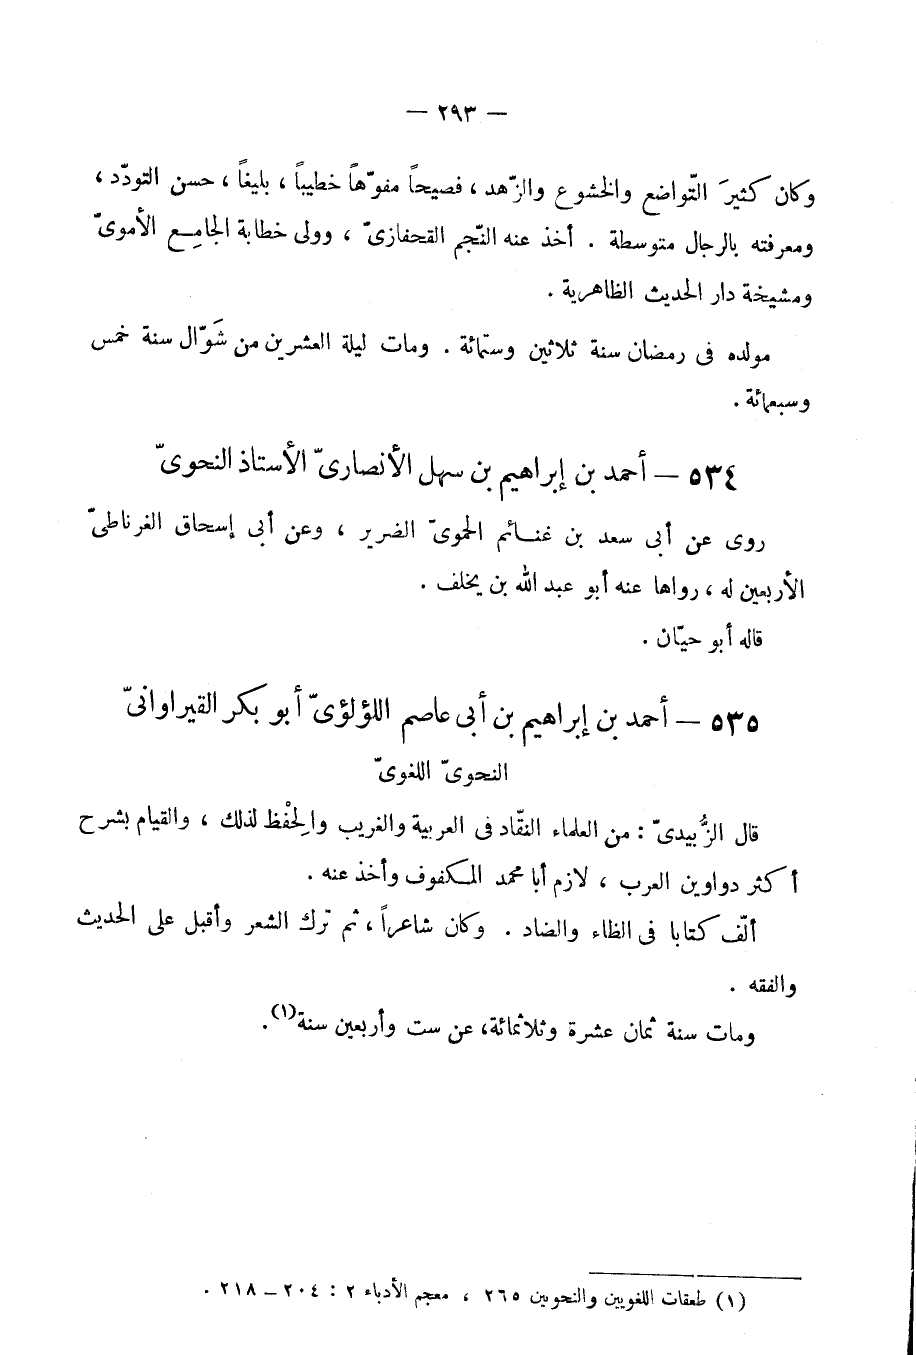 — ٢٩٣ —
وكان كثيرَ التّواضع والخشوع والزّهد ، فصيحاً مفوّهاً خطيباً ، بليغاً ، حسن التودّد ،
ومعرفته بالرجال متوسطة . أخذ عنه النّجم القحفازىّ ، وولى خطابة الجامع الأموىّ
ومشيخة دار الحديث الظاهرية .
مولده فى رمضان سنة ثلاثين وستمائة . ومات ليلة العشرين من شَوّال سنة خمس
وسبعمائة .
٥٣٤ — أحمد بن إبراهيم بن سهل الأنصارىّ الأستاذ النحوىّ
روى عن أبى سعد بن غنائم الحموىّ الضرير ، وعن أبى إسحاق الغرناطىّ
الأربعين له ، رواها عنه أبو عبد الله بن يخلف .
قاله أبو حيّان .
٥٣٥ — أحمد بن إبراهيم بن أبى عاصم اللؤلؤىّ أبو بكر القيراوانىّ
النحوىّ اللغوىّ
قال الزُّبيدىّ : من العلماء النقّاد فى العربية والغريب والحِفْظ لذلك ، والقيام بشرح
أكثر دواوين العرب ، لازم أبا محمد المكفوف وأخذ عنه .
ألّف كتابا فى الظاء والضاد . وكان شاعراً ، ثم ترك الشعر وأقبل على الحديث
والفقه .
ومات سنة ثمان عشرة وثلاثمائة، عن ست وأربعين سنة(١).
(١) طعقات اللغويين والنحويين ٢٦٥ ، معجم الأدباء ٢ : ٢٠٤ — ٢١٨ .